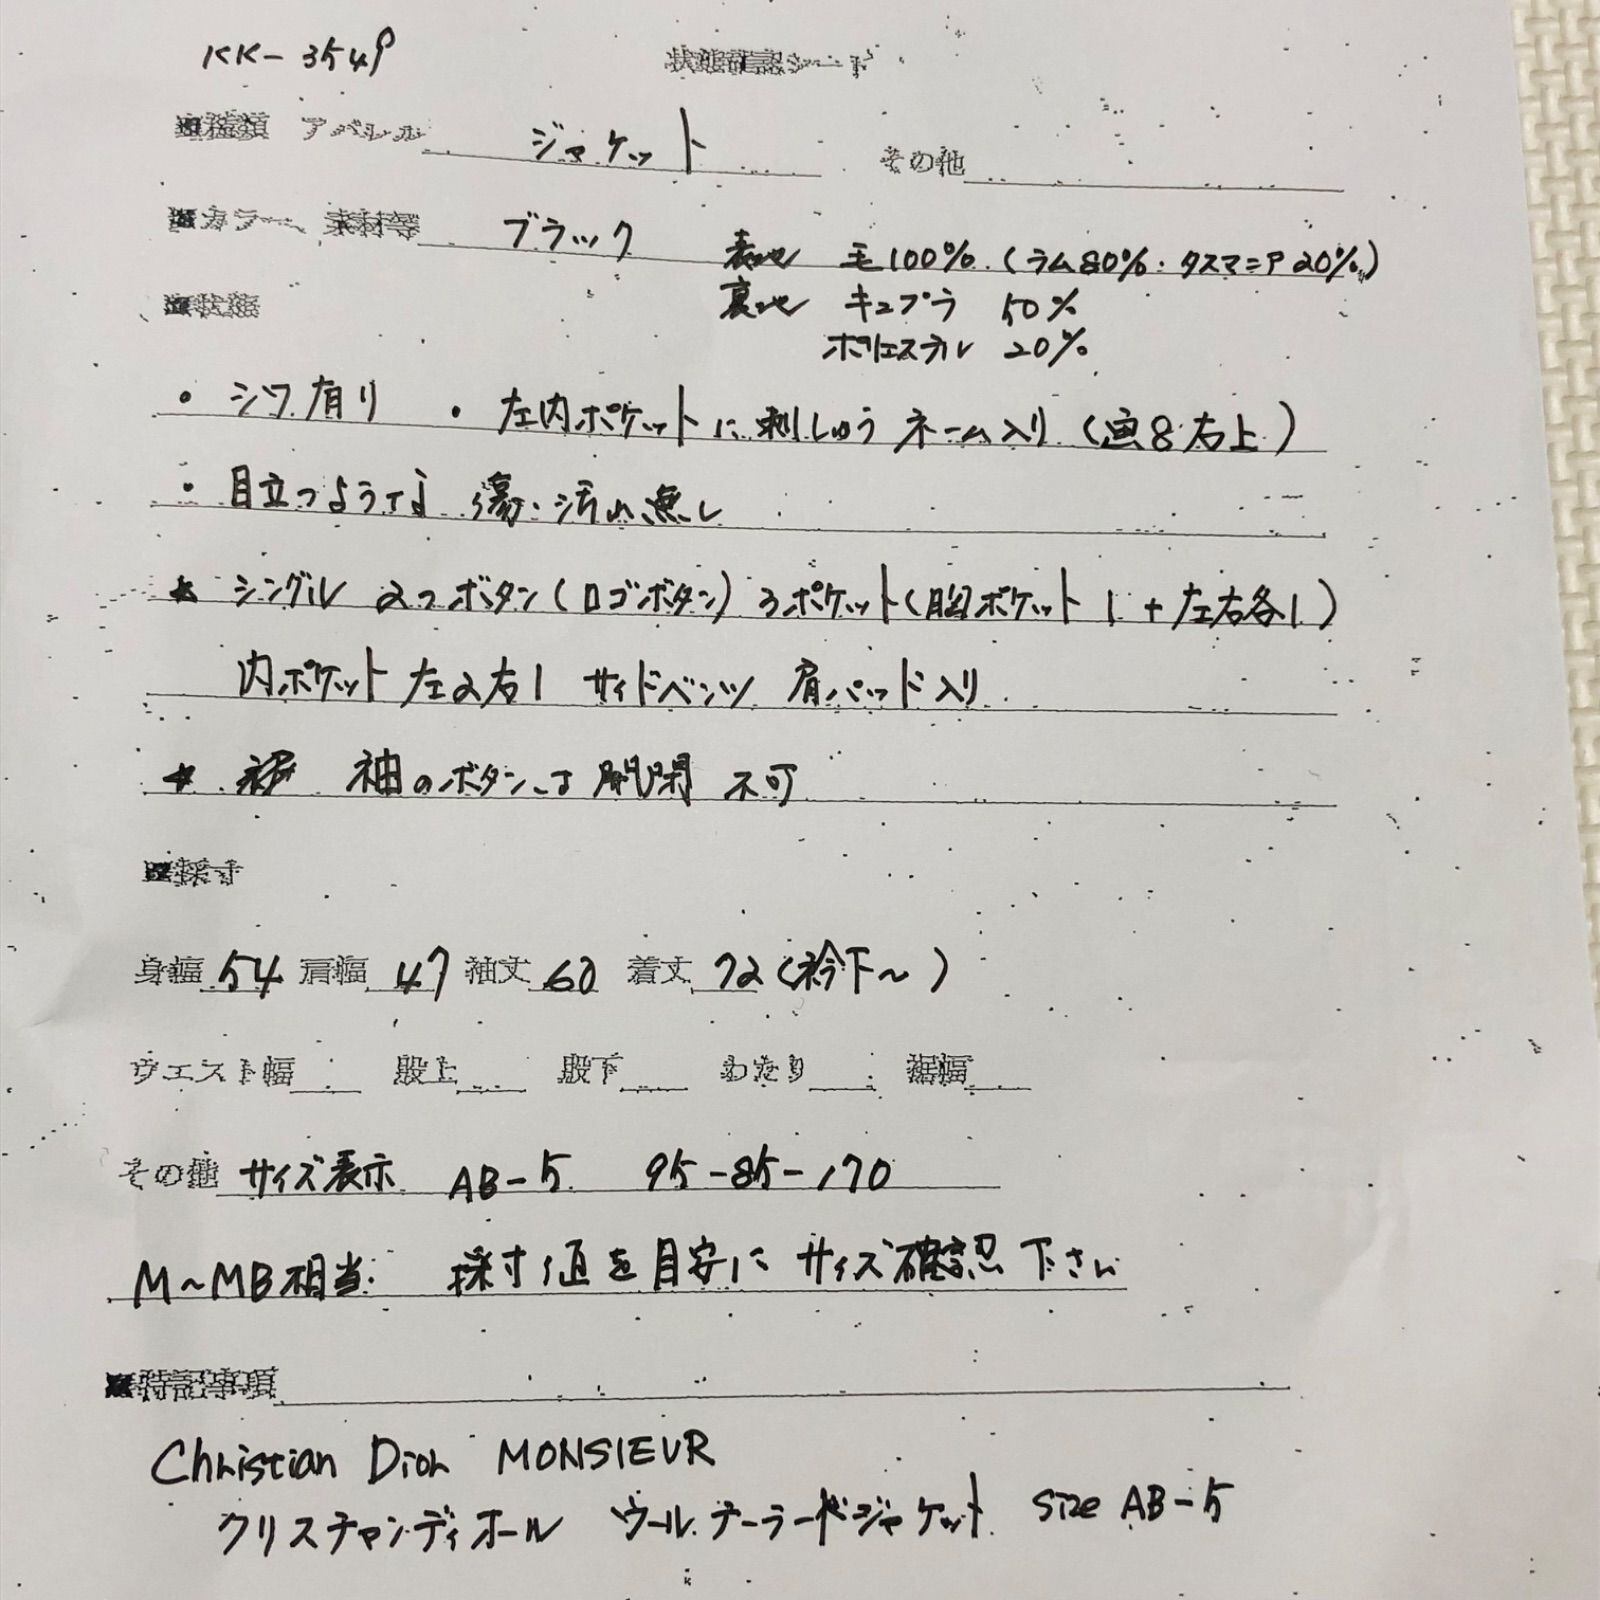 KK-3549 状態確認シート
■種類 アパレル ジャケット その他
■カラー、素材等 ブラック 表地 毛100%(ラム80%・タスマニア20%)
■状態 裏地 キュプラ 50%
ポリエステル 20%
・シワ有り ・左内ポケットに刺しゅうネーム入り(画8右上)
・目立つような傷・汚れ無し
★ シングル 2つボタン(ロゴボタン) 3ポケット(胸ポケット1+左右各1)
内ポケット左2右1 サイドベンツ 肩パッド入り
★ 袖のボタンは開閉不可
■採寸
身幅 54 肩幅 47 袖丈 60 着丈 72(衿下~)
ウエスト幅 股上 股下 わたり 裾幅
その他 サイズ表示 AB-5 95-85-170
M~MB相当. 採寸値を目安にサイズ確認下さい
■特記事項
Christian Dior MONSIEUR
クリスチャンディオール ウールテーラードジャケット size AB-5